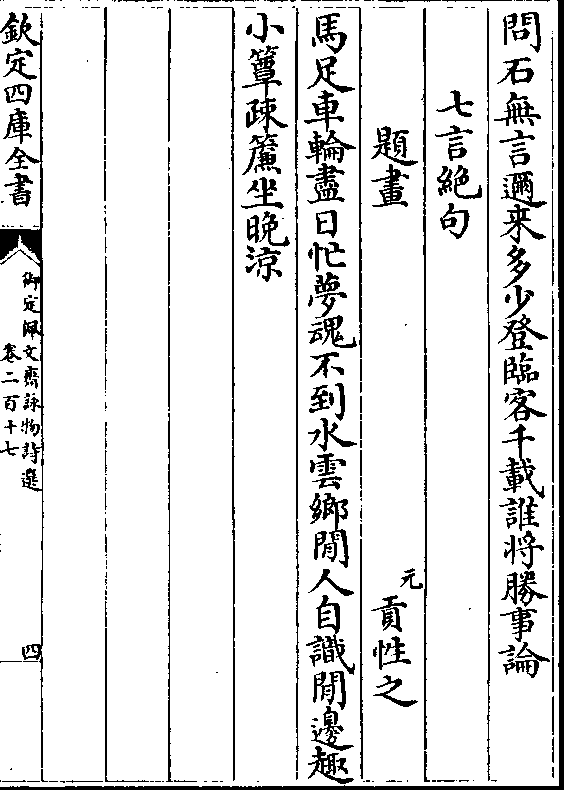 問石無言邇来多少登臨客千載誰将勝事論
七言絶句
題畫
元
貢性之
馬足車輪盡日忙夢魂不到水雲鄉閒人自識閒邊趣
小簟疎簾坐晚涼
欽定四庫全書
御定佩文齋詠物詩選
卷二百十七
四